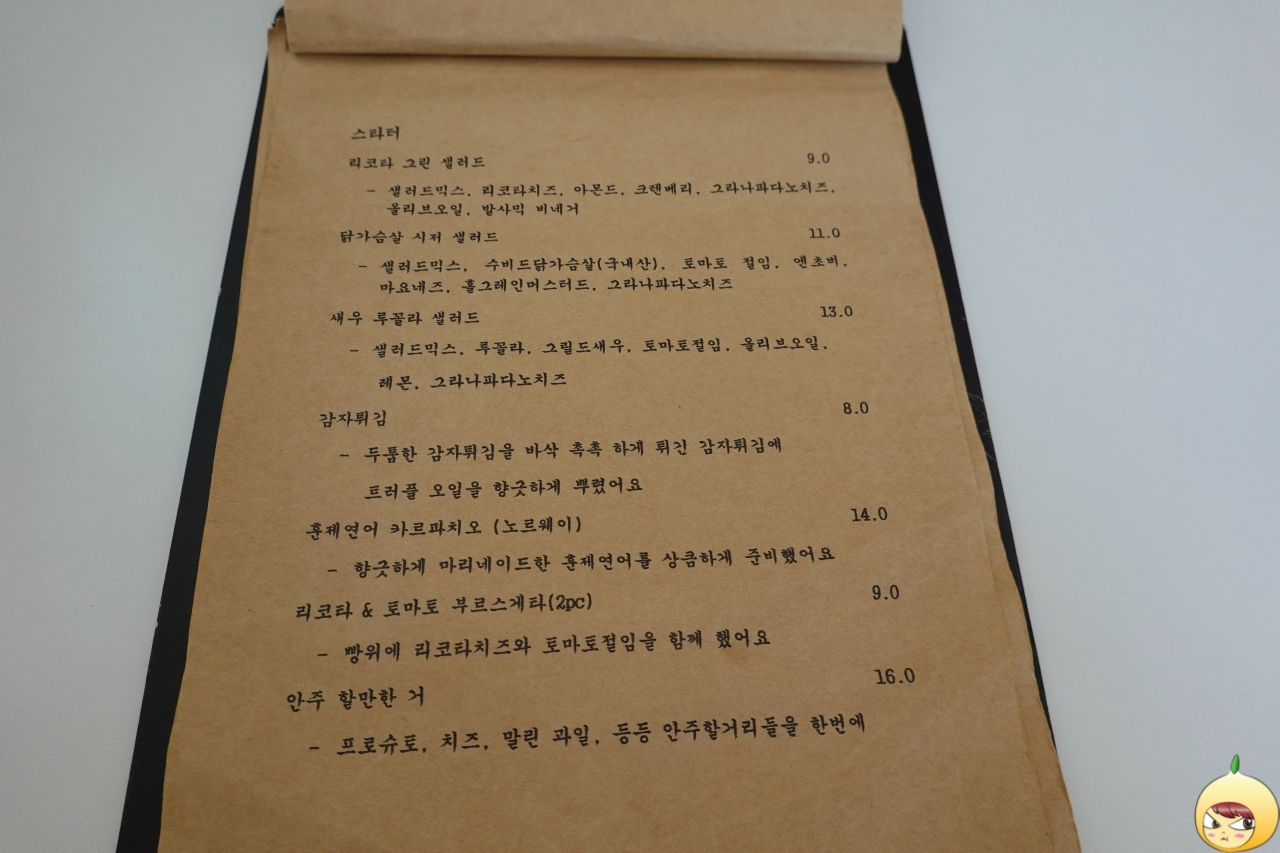 스타터
리코타 그린 샐러드 9.0
- 샐러드믹스, 리코타치즈, 아몬드, 크렌베리, 그라나파다노치즈,
올리브오일, 발사믹 비네거
닭가슴살 시저 샐러드 11.0
- 샐러드믹스, 수비드닭가슴살(국내산), 토마토 절임, 엔초비,
마요네즈, 홀그레인머스터드, 그라나파다노치즈
새우 루꼴라 샐러드 13.0
- 샐러드믹스, 루꼴라, 그릴드새우, 토마토절임, 올리브오일,
레몬, 그라나파다노치즈
감자튀김 8.0
- 두툼한 감자튀김을 바삭 촉촉 하게 튀긴 감자튀김에
트러플 오일을 향긋하게 뿌렸어요
훈제연어 카르파치오 (노르웨이) 14.0
- 향긋하게 마리네이드한 훈제연어를 상큼하게 준비했어요
리코타 & 토마토 부르스게타(2pc) 9.0
- 빵위에 리코타치즈와 토마토절임을 함께 했어요
안주 할만한 거 16.0
- 프로슈토, 치즈, 말린 과일, 등등 안주할거리들을 한번에